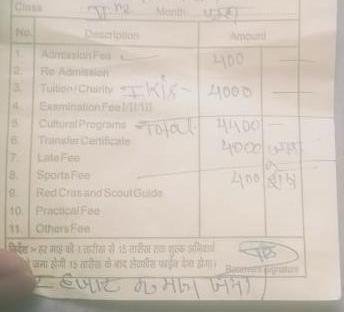 Class Month
No. Description Amount
1. Admission Fee 400
2. Re Admission
3. Tuition/Charity 4000
4. Examination Fee I/II/III
5. Cultural Programs Total 4400
6. Transfer Certificate 4000 जमा
7. Late Fee
8. Sports Fee 400 शेष
9. Red Cras and Scout Guide
10. Practical Fee
11. Others Fee
निर्देश :- हर माह की 1 तारीख से 15 तारीख तक शुल्क अनिवार्य
जमा होगी 15 तारीख के बाद लेट फीस फाईन देना होगा। Signature
हजार जमा